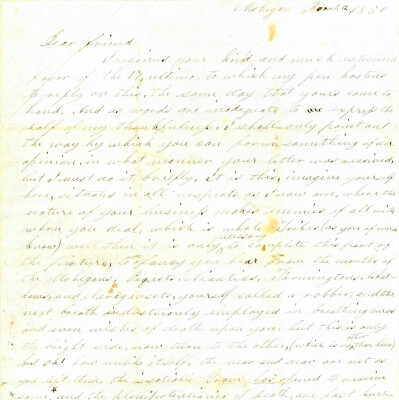 Mohegan March 2 / 1830
Dear friend
I received your kind and much esteemed
favor of the 17, ultimo, to which my pen hastens
to reply on this, the same day that yours came to
hand, And as words are inadequate to express the
half of my thankfulness, I shall only point out
the way by which you can form something of an
opinion, in what manner your letter was received,
but I must do it briefly, It is this, imagine yourself
here, situated in all respects as I now am, where the
nature of your business makes enemies of all with
whom you deal, which is whole tribes (as you of
know) well then it is only to complete this part of
the picture, to fancy you hear from the mouths of
the Mohegans, Pequots, Niantics, Stonningtons,
and Narragansets, yourself called a robber, and the
next breath industriously employed in breathing
and even wishes of death upon you, but this is only
the right side, now turn to the other, (which is the other)
but oh! how unlike itself, the near and dear are not as
you left them, the
some, and the of death, are past